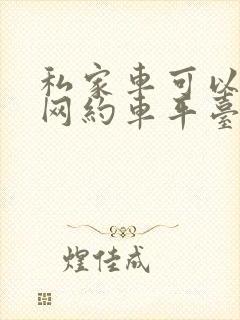 私家車可以
网約車平臺
煌佳成